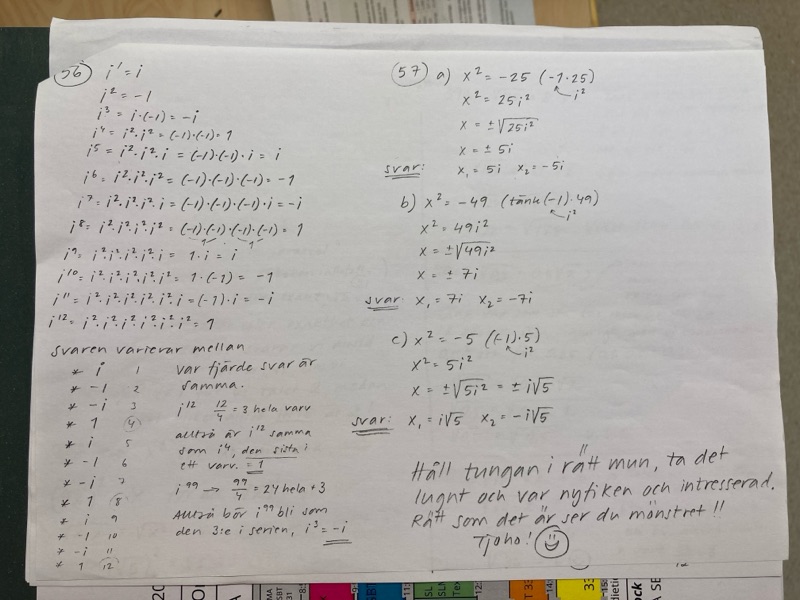 56) i¹ = i
i² = -1
i³ = i·(-1) = -i
i⁴ = i²·i² = (-1)·(-1) = 1
i⁵ = i²·i²·i = (-1)·(-1)·i = i
i⁶ = i²·i²·i² = (-1)·(-1)·(-1) = -1
i⁷ = i²·i²·i²·i = (-1)·(-1)·(-1)·i = -i
i⁸ = i²·i²·i²·i² = (-1)·(-1)·(-1)·(-1) = 1
1 1
i⁹ = i²·i²·i²·i²·i = 1·i = i
i¹⁰ = i²·i²·i²·i²·i² = 1·(-1) = -1
i¹¹ = i²·i²·i²·i²·i²·i = (-1)·i = -i
i¹² = i²·i²·i²·i²·i²·i² = 1
Svaren varierar mellan
* i 1
* -1 2
* -i 3
* 1 4
* i 5
* -1 6
* -i 7
* 1 8
* i 9
* -1 10
* -i 11
* 1 12
Var fjärde svar är
samma.
i¹² 12/4 = 3 hela varv
alltså är i¹² samma
som i⁴, den sista i
ett varv. = 1
i⁹⁹ → 99/4 = 24 hela + 3
Alltså bör i⁹⁹ bli som
den 3:e i serien, i³ = -i
57) a) x² = -25 (-1·25)
x² = 25i² i²
x = ±√25i²
x = ± 5i
svar: x₁ = 5i x₂ = -5i
b) x² = -49 (tänk (-1)·49)
x² = 49i² i²
x = ±√49i²
x = ± 7i
svar: x₁ = 7i x₂ = -7i
c) x² = -5 (-1)·5)
x² = 5i² i²
x = ±√5i² = ± i√5
svar: x₁ = i√5 x₂ = -i√5
Håll tungan i rätt mun, ta det
lugnt och var nyfiken och intresserad.
Rätt som det är ser du mönstret!!
Tjoho!